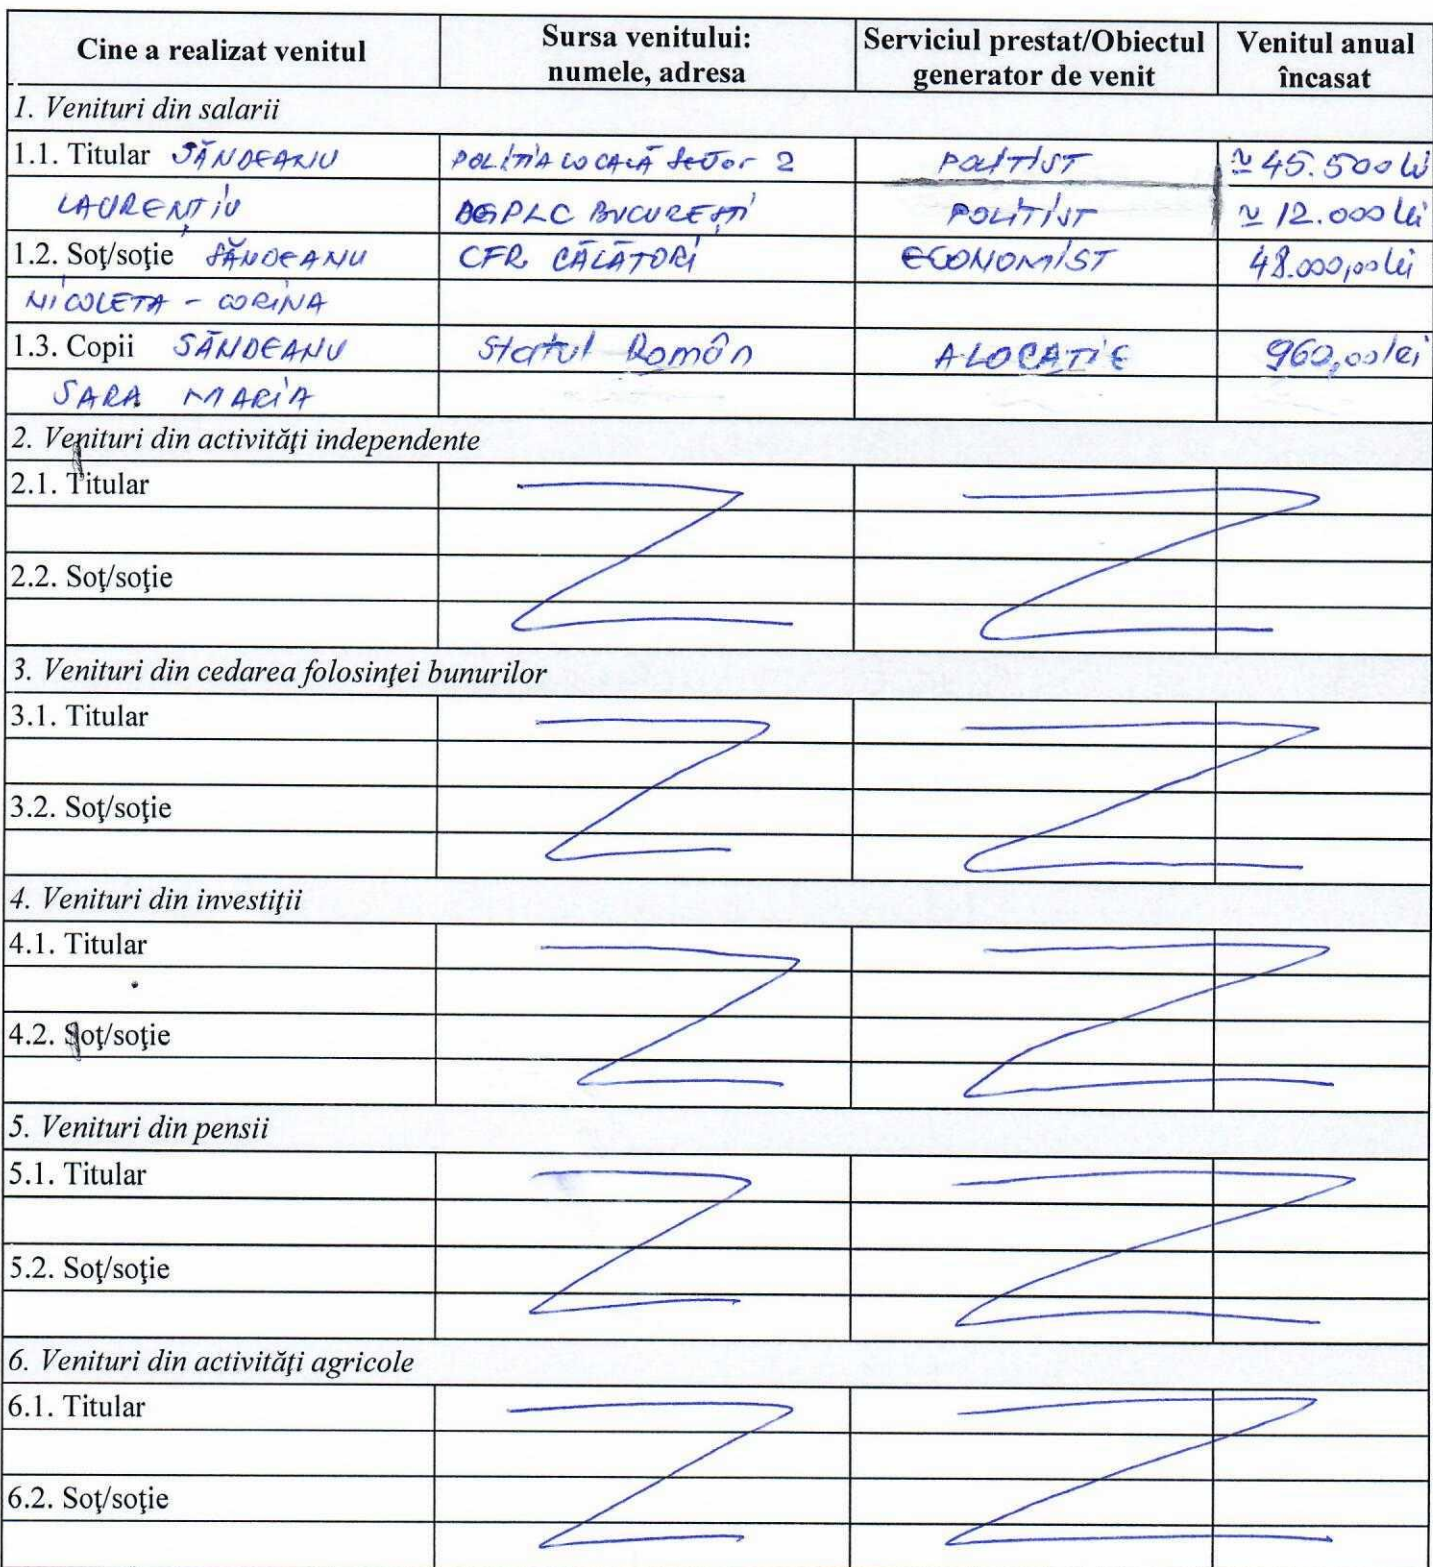 Cine a realizat venitul
Sursa venitului:
numele, adresa
Serviciul prestat/Obiectul
generator de venit
Venitul anual
încasat
1. Venituri din salarii
1.1. Titular SĂNDEANU POLIŢIA LOCALĂ Sector 2 POLITIST ≃ 45.500 lei
LAURENȚIU DGPLC BUCUREȘTI POLITIST ≃ 12.000 lei
1.2. Soţ/soţie SĂNDEANU CFR CĂLĂTORI ECONOMIST 48.000,00 lei
NICOLETA - CORINA
1.3. Copii SĂNDEANU Statul Român ALOCATIE 960,00 lei
SARA MARIA
2. Venituri din activităţi independente
2.1. Titular
2.2. Soţ/soţie
3. Venituri din cedarea folosinţei bunurilor
3.1. Titular
3.2. Soţ/soţie
4. Venituri din investiţii
4.1. Titular
4.2. Soţ/soţie
5. Venituri din pensii
5.1. Titular
5.2. Soţ/soţie
6. Venituri din activităţi agricole
6.1. Titular
6.2. Soţ/soţie